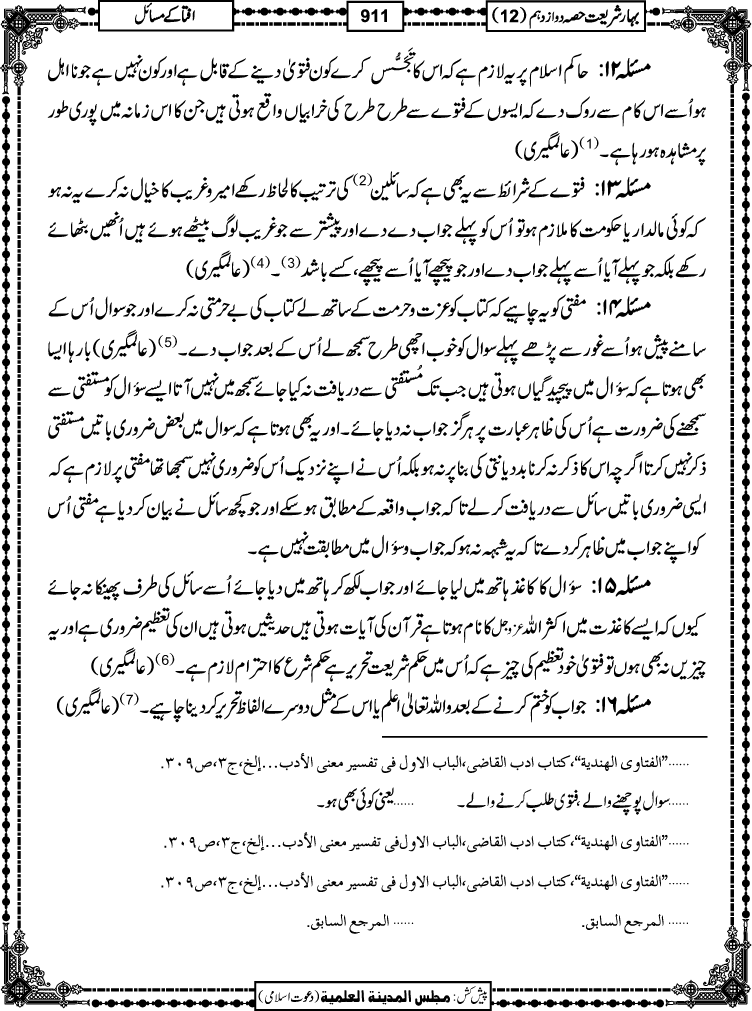 بہار شریعت حصہ دوازدہم (12)
911
افتا کے مسائل
مسئلہ ۱۲: حاکم اسلام پر یہ لازم ہے کہ اس کا تَجَسُّس کرے کون فتویٰ دینے کے قابل ہے اور کون نہیں ہے جو نا اہل
ہو اُسے اس کام سے روک دے کہ ایسوں کے فتوے سے طرح طرح کی خرابیاں واقع ہوتی ہیں جن کا اس زمانہ میں پوری طور
پر مشاہدہ ہورہا ہے۔(1) (عالمگیری)
مسئلہ ۱۳: فتوے کے شرائط سے یہ بھی ہے کہ سائلین(2) کی ترتیب کا لحاظ رکھے امیر و غریب کا خیال نہ کرے یہ نہ ہو
کہ کوئی مالدار یا حکومت کا ملازم ہو تو اُس کو پہلے جواب دے دے اور پیشتر سے جو غریب لوگ بیٹھے ہوئے ہیں اُنھیں بٹھائے
رکھے بلکہ جو پہلے آیا اُسے پہلے جواب دے اور جو پیچھے آیا اُسے پیچھے، کسے باشد(3)۔(4) (عالمگیری)
مسئلہ ۱۴: مفتی کو یہ چاہیے کہ کتاب کو عزت و حرمت کے ساتھ لے کتاب کی بے حرمتی نہ کرے اور جو سوال اُس کے
سامنے پیش ہو اُسے غور سے پڑھے پہلے سوال کو خوب اچھی طرح سمجھ لے اُس کے بعد جواب دے۔(5) (عالمگیری) بارہا ایسا
بھی ہوتا ہے کہ سؤال میں پیچیدگیاں ہوتی ہیں جب تک مُستفتی سے دریافت نہ کیا جائے سمجھ میں نہیں آتا ایسے سؤال کو مستفتی سے
سمجھنے کی ضرورت ہے اُس کی ظاہر عبارت پر ہرگز جواب نہ دیا جائے۔ اور یہ بھی ہوتا ہے کہ سوال میں بعض ضروری باتیں مستفتی
ذکر نہیں کرتا اگرچہ اس کا ذکر نہ کرنا بددیانتی کی بنا پر نہ ہو بلکہ اُس نے اپنے نزدیک اُس کو ضروری نہیں سمجھا تھا مفتی پر لازم ہے کہ
ایسی ضروری باتیں سائل سے دریافت کرلے تاکہ جواب واقعہ کے مطابق ہو سکے اور جو کچھ سائل نے بیان کر دیا ہے مفتی اُس
کو اپنے جواب میں ظاہر کر دے تاکہ یہ شبہہ نہ ہو کہ جواب و سؤال میں مطابقت نہیں ہے۔
مسئلہ ۱۵: سؤال کا کاغذ ہاتھ میں لیا جائے اور جواب لکھ کر ہاتھ میں دیا جائے اُسے سائل کی طرف پھینکا نہ جائے
کیوں کہ ایسے کاغذت میں اکثر اللہ عزوجل کا نام ہوتا ہے قرآن کی آیات ہوتی ہیں حدیثیں ہوتی ہیں ان کی تعظیم ضروری ہے اور یہ
چیزیں نہ بھی ہوں تو فتویٰ خود تعظیم کی چیز ہے کہ اُس میں حکم شریعت تحریر ہے حکم شرع کا احترام لازم ہے۔(6) (عالمگیری)
مسئلہ ۱۶: جواب کو ختم کرنے کے بعد واللہ تعالیٰ اعلم یا اس کے مثل دوسرے الفاظ تحریر کر دینا چاہیے۔(7) (عالمگیری)
......”الفتاوى الهندية“، كتاب ادب القاضى،الباب الاول فى تفسير معنى الأدب...إلخ،ج۳،ص۳۰۹.
......سوال پوچھنے والے، فتوی طلب کرنے والے۔ ......یعنی کوئی بھی ہو۔
......”الفتاوى الهندية“، كتاب ادب القاضى،الباب الاول فى تفسير معنى الأدب...إلخ،ج۳،ص۳۰۹.
......”الفتاوى الهندية“، كتاب ادب القاضى،الباب الاول فى تفسير معنى الأدب...إلخ،ج۳،ص۳۰۹.
...... المرجع السابق. ...... المرجع السابق.
پیش کش: مجلس المدينة العلمية (دعوت اسلامی)